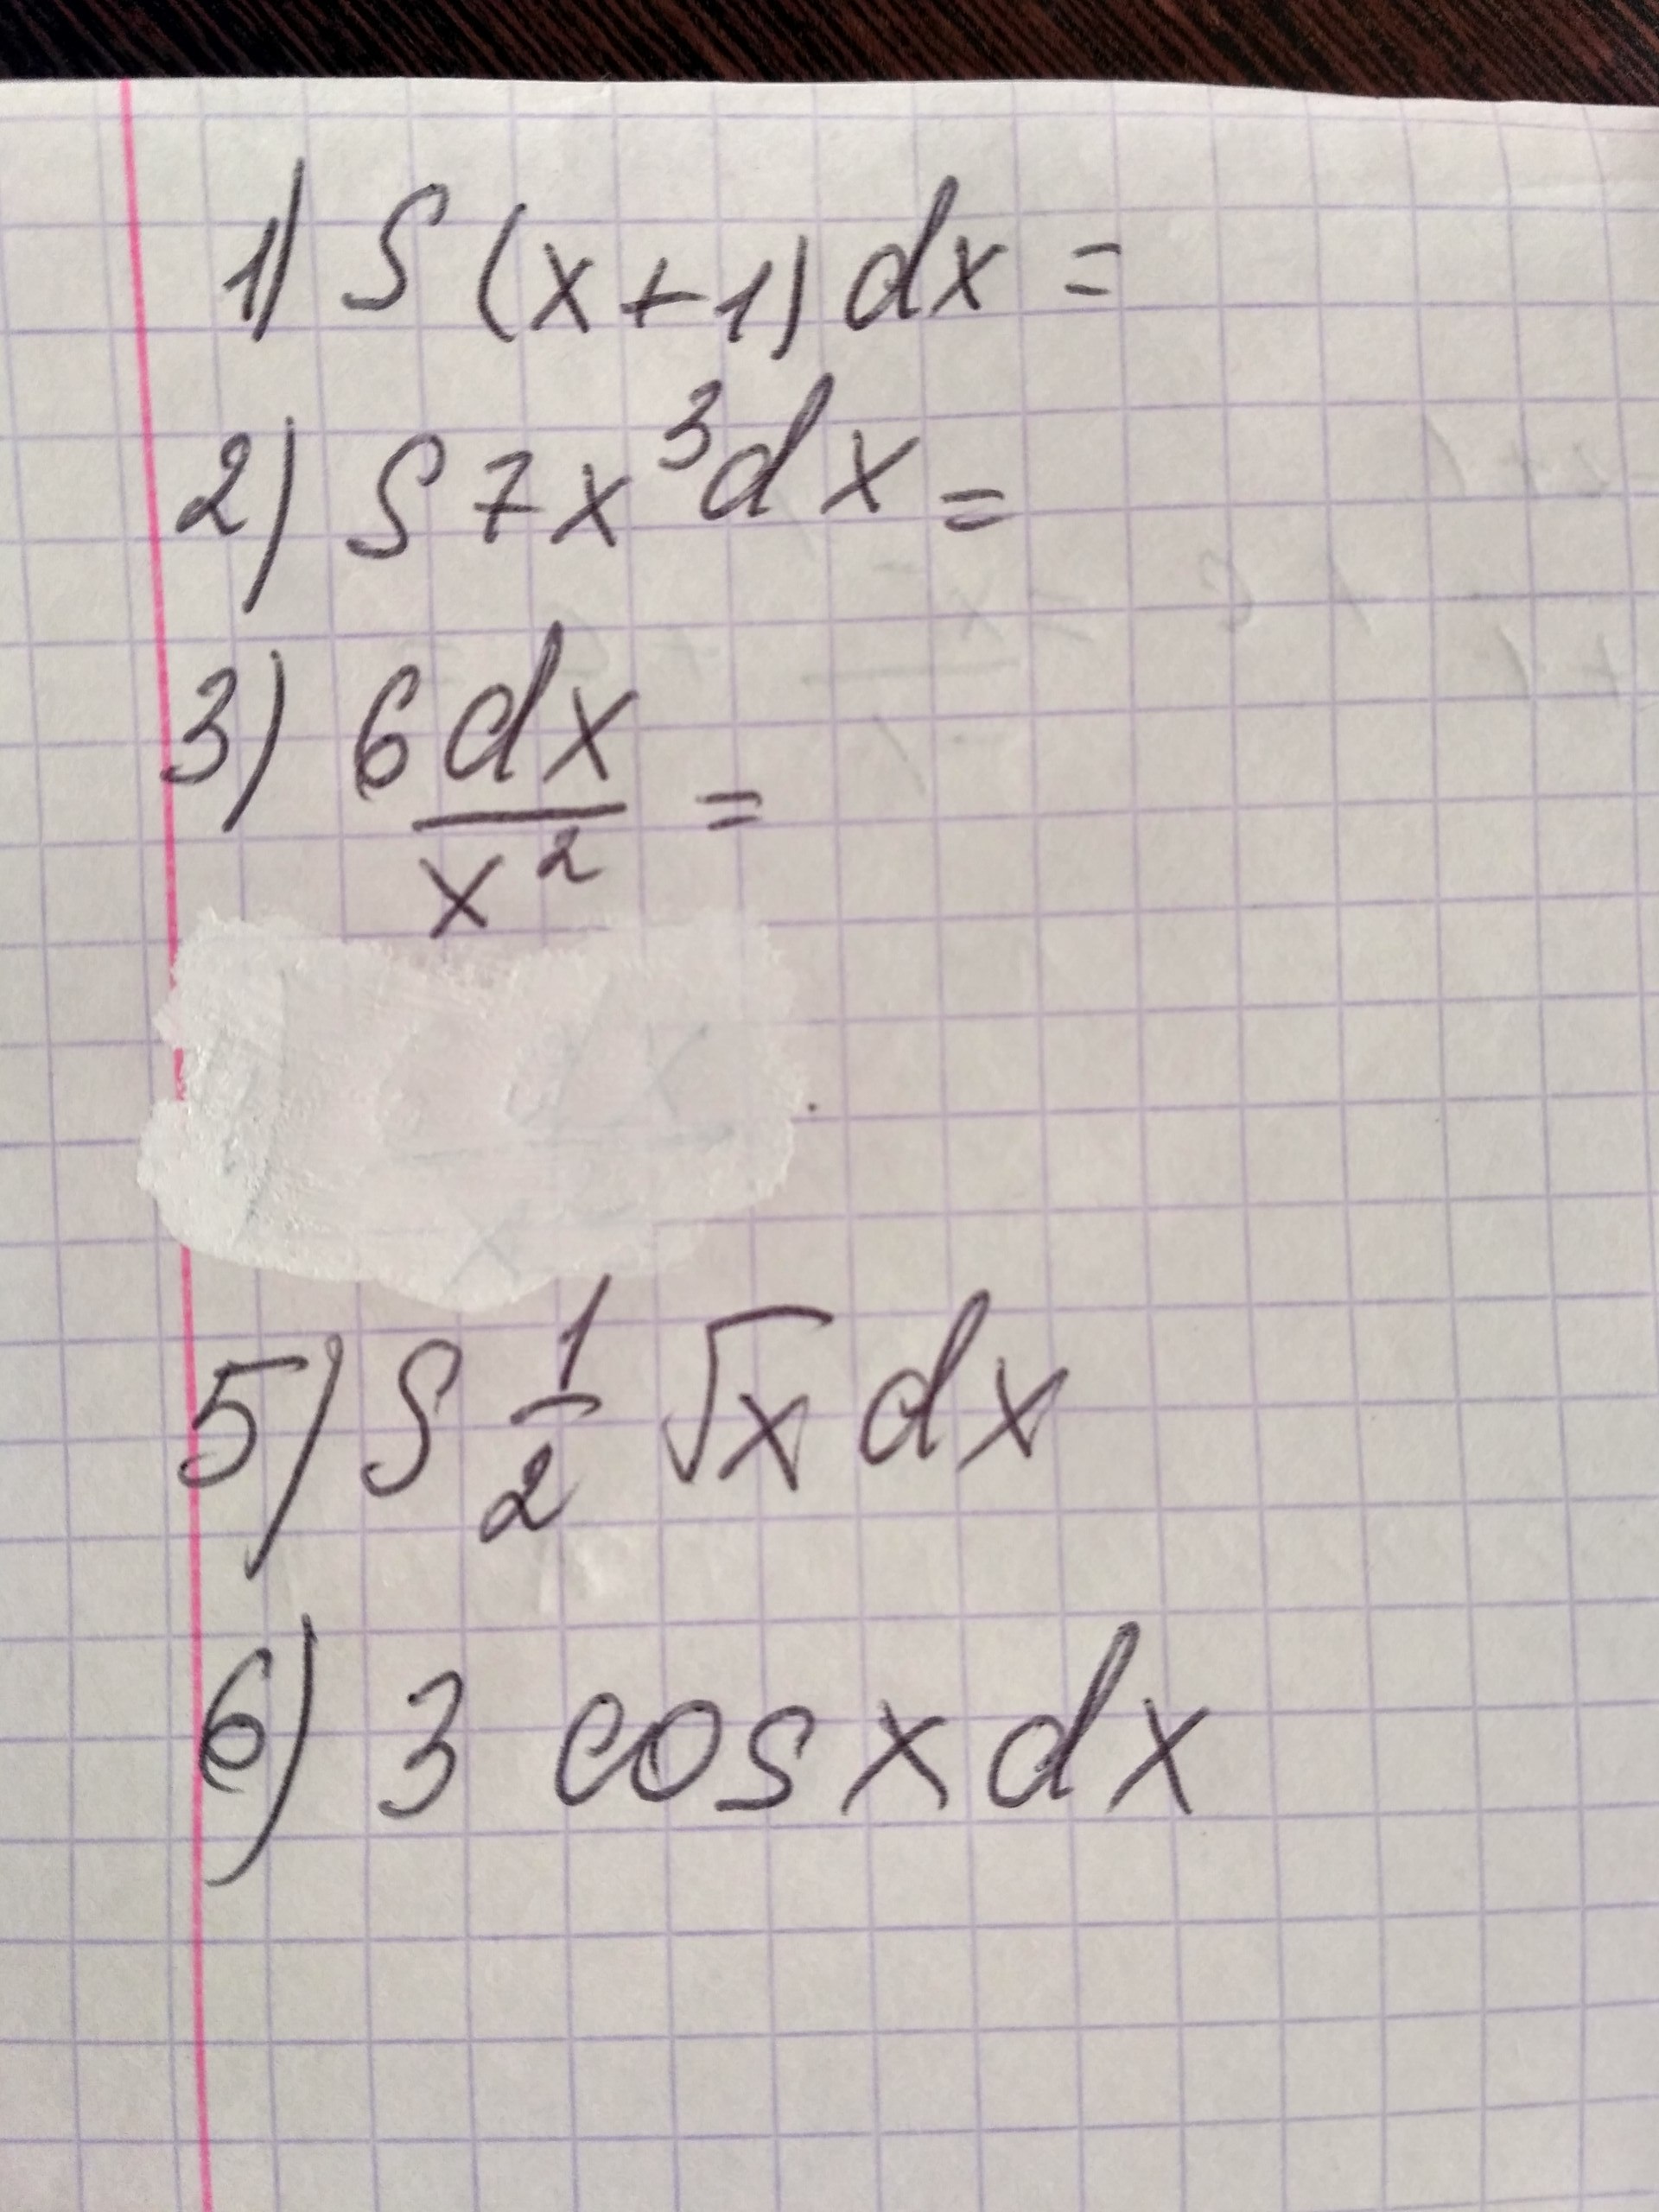 1) ∫ (x+1) dx =
2) ∫ 7x³ dx =
3) 6 dx/x² =
5) ∫ 1/2 √x dx
6) 3 cos x dx